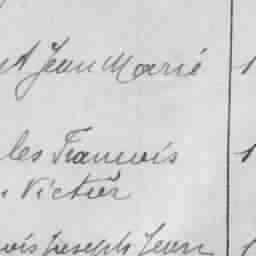 Jean Marie 1
les Francois 1
Victor
ois Joseph Jean 1